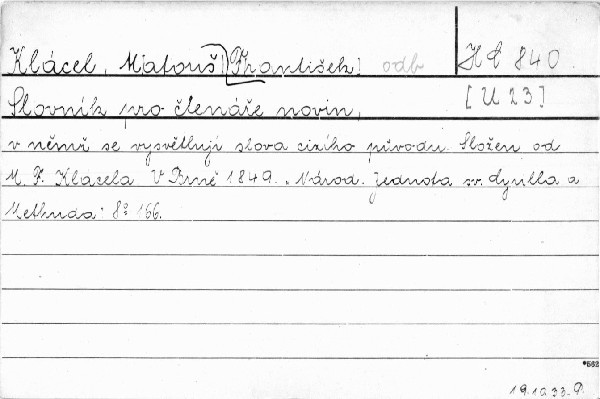 Klácel, Matouš [František] odb HE 840
Slovník pro čtenáře novin, [U 23]
v němž se vysvětlují slova cizího původu. Složen od
M. F. Klacela V Brně 1849. Národ. Jednota sv. Cyrilla a
Methuda. 8° 166.
*562
19.10.33.P.